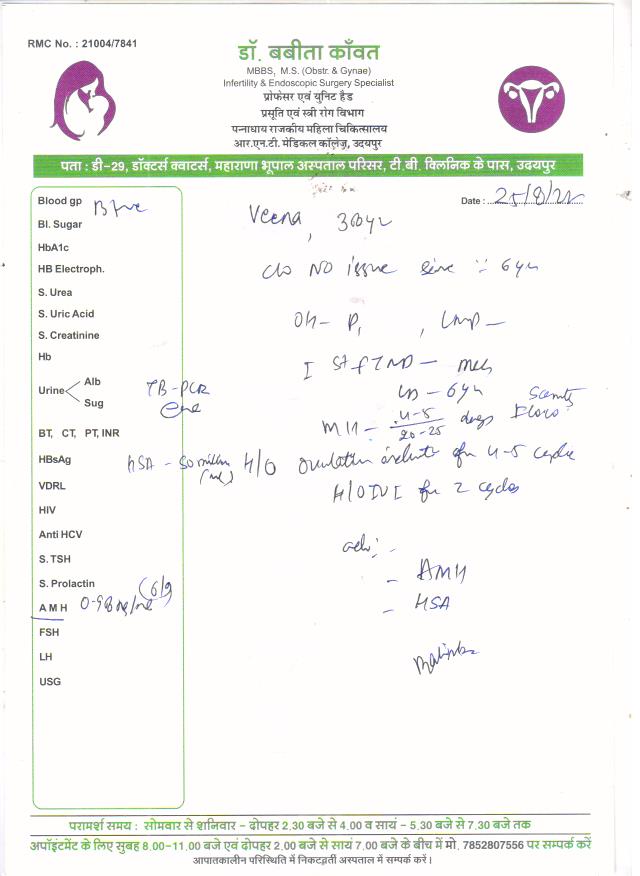 RMC No. : 21004/7841
डॉ. बबीता काँवत
MBBS, M.S. (Obstr. & Gynae)
Infertility & Endoscopic Surgery Specialist
प्रोफेसर एवं युनिट हैड
प्रसूति एवं स्त्री रोग विभाग
पन्नाधाय राजकीय महिला चिकित्सालय
आर.एन.टी. मेडिकल कॉलेज, उदयपुर
पता : डी-29, डॉक्टर्स क्वाटर्स, महाराणा भूपाल अस्पताल परिसर, टी.बी. क्लिनिक के पास, उदयपुर
Date : 25/8/22
Blood gp B +ve
Bl. Sugar
HbA1c
HB Electroph.
S. Urea
S. Uric Acid
S. Creatinine
Hb
Urine Alb
Sug
TB-PCR
BT, CT, PT, INR
HBsAg
HSA - 50 million
VDRL
HIV
Anti HCV
S. TSH
S. Prolactin (6/9
A M H 0-98 ng/ml
FSH
LH
USG
Veena, 36 yr
c/o NO issue since 6 yr
OH- P1, LMP -
I st FTND -
LD - 6yr
MH - 4-5/20-25 days Flow Scanty
H/O ovulation for 4-5 cycle
H/O IUI for 2 cycles
adv: -
- AMH
- HSA
परामर्श समय : सोमवार से शनिवार - दोपहर 2.30 बजे से 4.00 व सायं - 5.30 बजे से 7.30 बजे तक
अपॉइंटमेंट के लिए सुबह 8.00-11.00 बजे एवं दोपहर 2.00 बजे से सायं 7.00 बजे के बीच में मो. 7852807556 पर सम्पर्क करें
आपातकालीन परिस्थिति में निकटवर्ती अस्पताल में सम्पर्क करें।